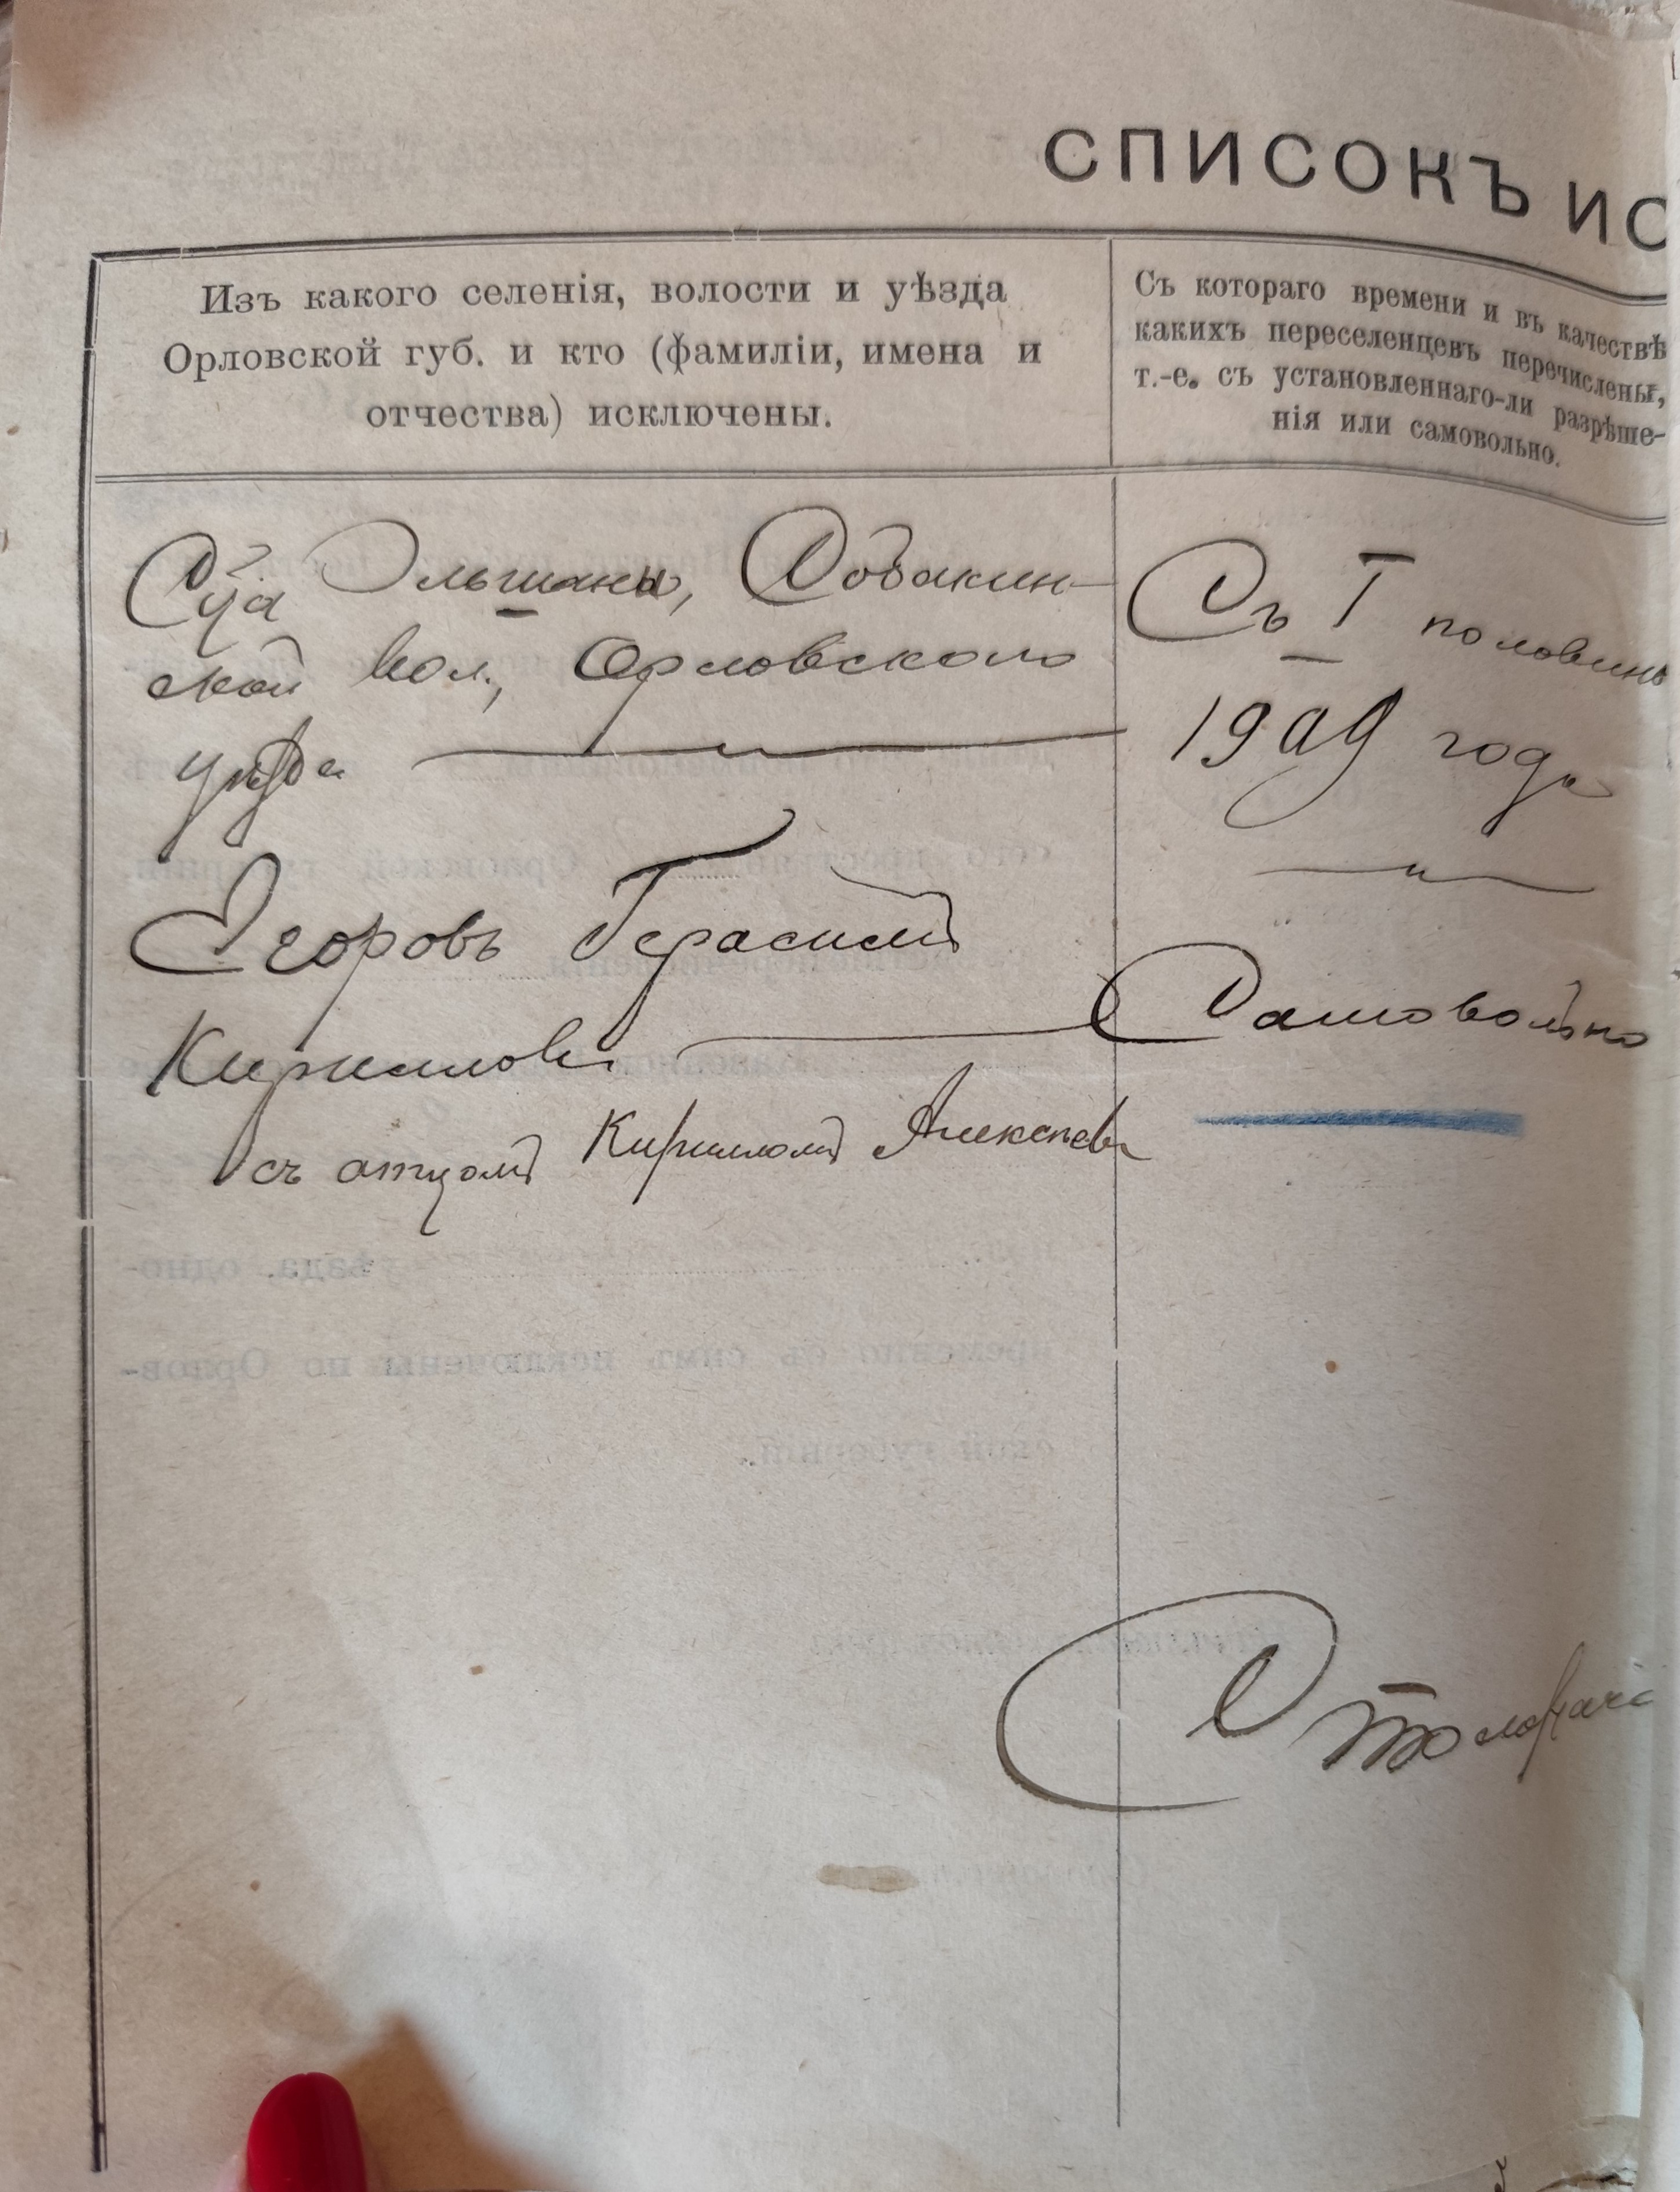 СПИСОКЪ ИС
Изъ какого селенія, волости и уѣзда
Орловской губ. и кто (фамиліи, имена и
отчества) исключены.
Съ котораго времени и въ качествѣ
какихъ переселенцевъ перечислены,
т.-е. съ установленнаго-ли разрѣше-
нія или самовольно.
Ольшаны, Собакин-
ской вол., Орловскаго
уѣзда
Егоровъ Герасимъ
Кирилловъ
съ отцомъ Кирилломъ Алексѣев
Съ I половины
1909 года
Самовольно